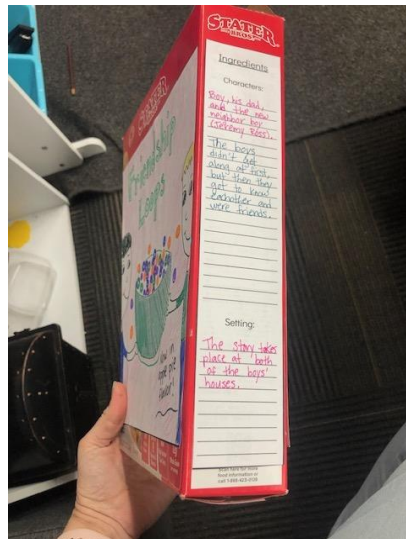 STATER
BROS
Ingredients
Characters:
Boy, his dad,
and the new
neighbor boy
(Jeremy Ross).
The boys
didn't get
along at first,
but then they
got to know
eachother and
were friends.
Setting:
The story takes
place at both
of the boys'
houses.
STATER
Friendship
Loops
Now in
apple pie
flavor!
food information or
call 1-855-423-3135